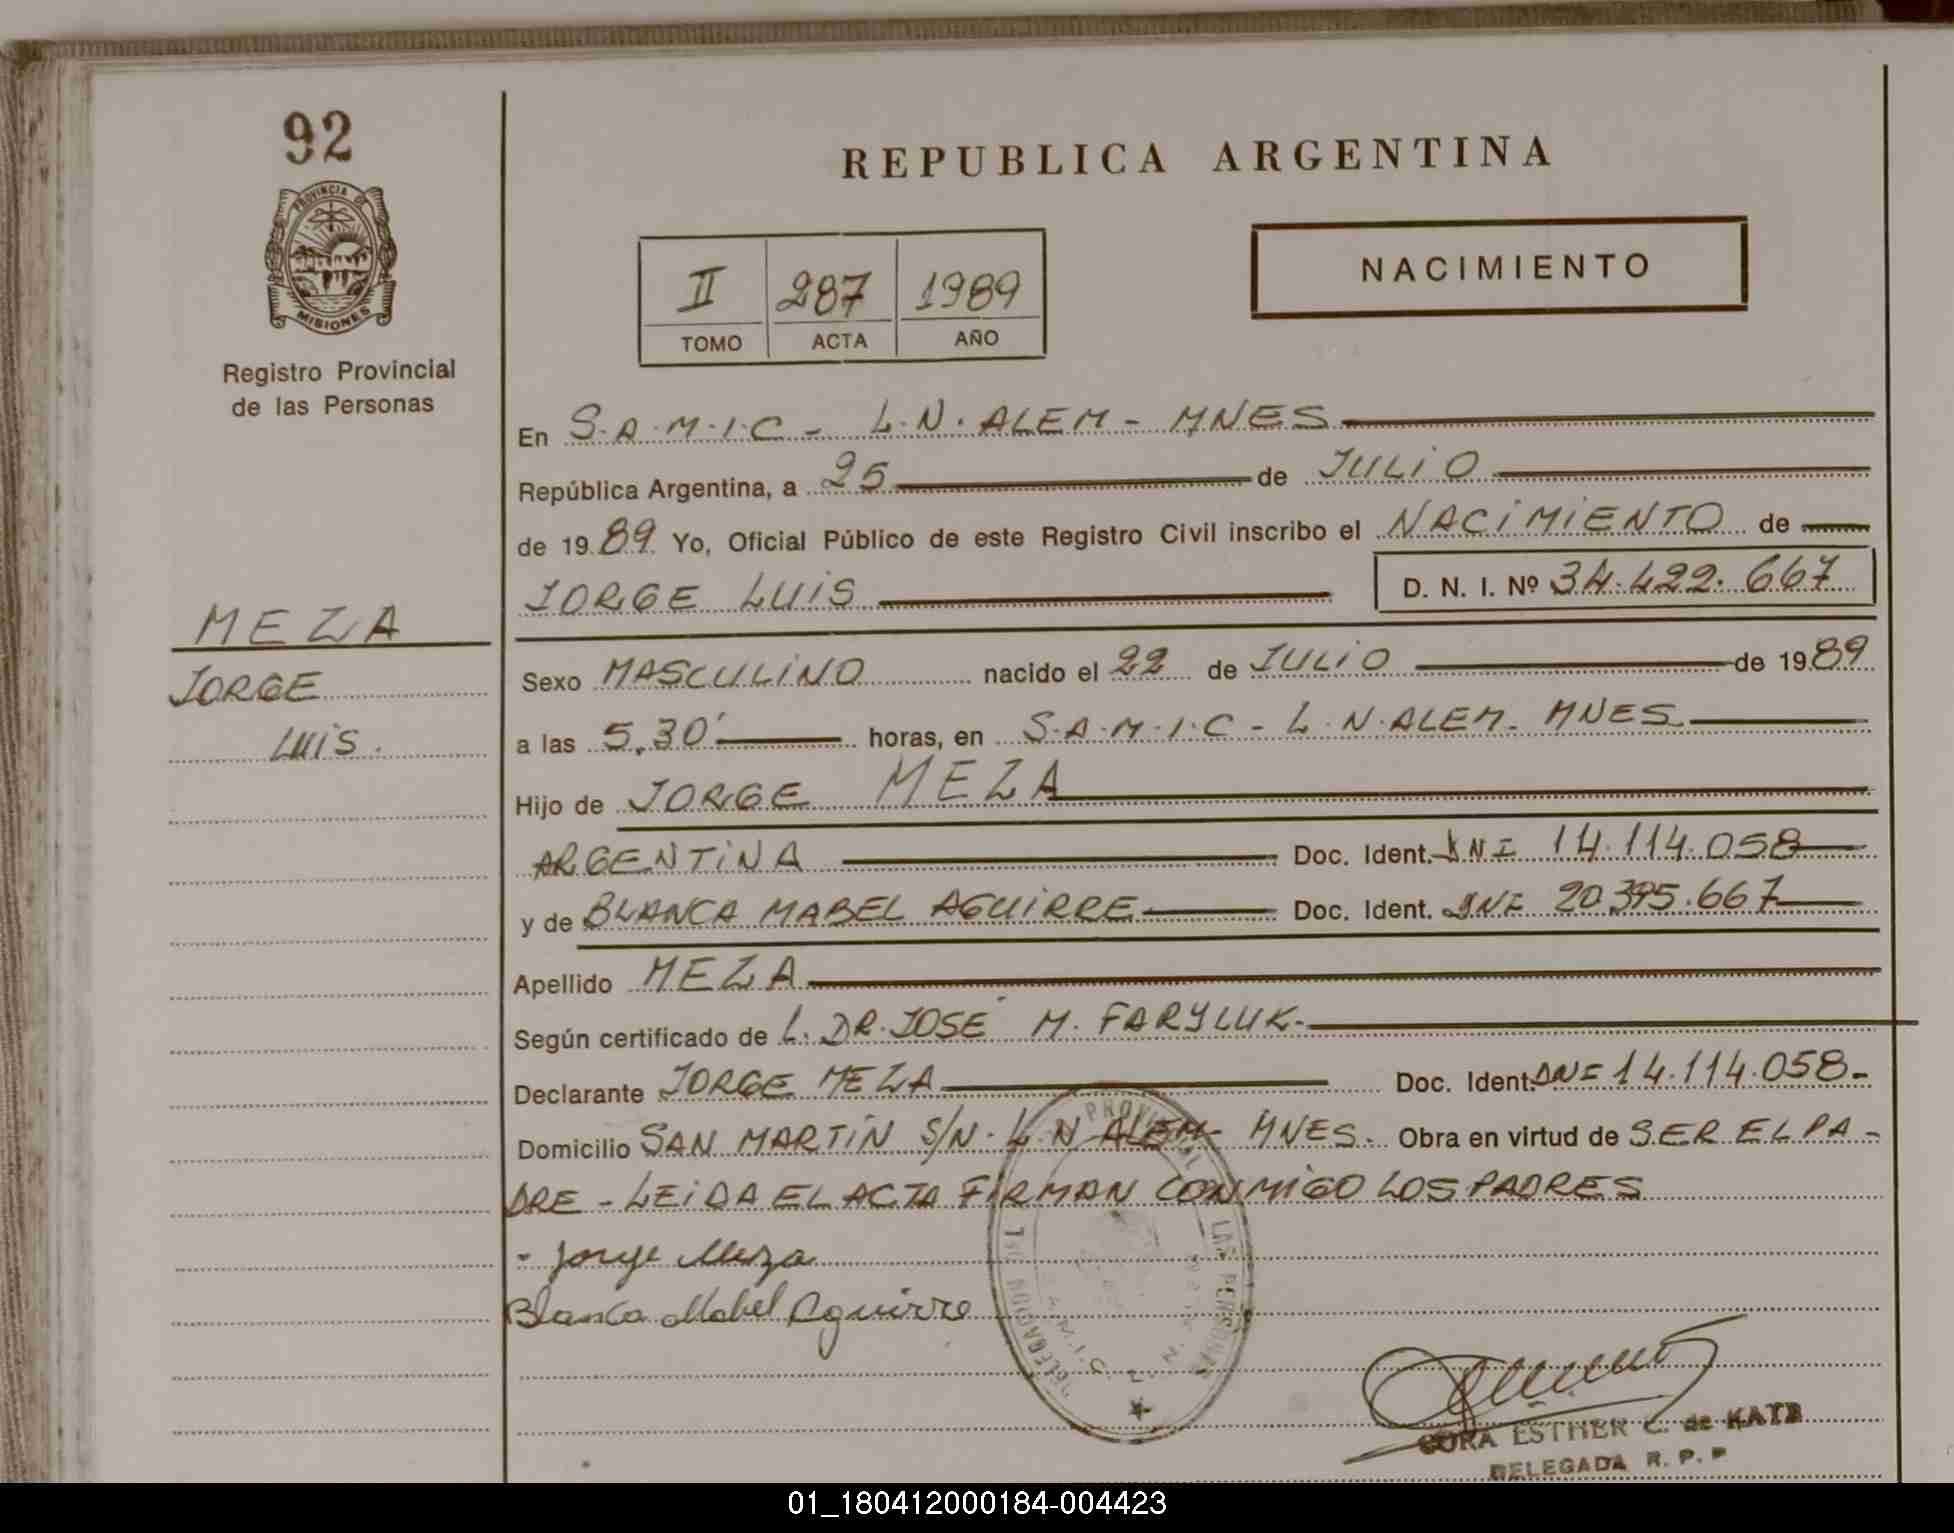 92
PROVINCIA DE
MISIONES
Registro Provincial
de las Personas
MEZA
JORGE
LUIS.
REPUBLICA ARGENTINA
II 287 1989
TOMO ACTA AÑO
NACIMIENTO
En S.A.M.I.C - L.N. ALEM - MNES
República Argentina, a 25 de JULIO
de 1989 Yo, Oficial Público de este Registro Civil inscribo el NACIMIENTO de
JORGE LUIS D. N. I. Nº 34.422.667
Sexo MASCULINO nacido el 22 de JULIO de 1989
a las 5,30' horas, en S.A.M.I.C - L.N. ALEM - MNES
Hijo de JORGE MEZA
ARGENTINA Doc. Ident. DNI 14.114.058
y de BLANCA MABEL AGUIRRE Doc. Ident. DNI 20.395.667
Apellido MEZA
Según certificado de L. DR. JOSE M. FARYLUK.
Declarante JORGE MEZA Doc. Ident. DNI 14.114.058-
Domicilio SAN MARTIN S/N. L.N ALEM - MNES. Obra en virtud de SER EL PA-
DRE - LEIDA EL ACTA FIRMAN CONMIGO LOS PADRES
- Jorge Meza
Blanca Mabel Aguirre
ESTHER C. de KATZ
DELEGADA R. P. P
01_180412000184-004423